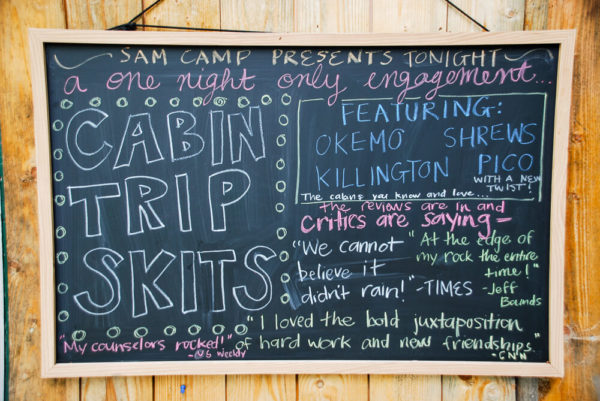 SAM CAMP PRESENTS TONIGHT
a one night only engagement...
CABIN
TRIP
SKITS
FEATURING:
OKEMO SHREWS
KILLINGTON PICO
WITH A NEW
TWIST!
The cabins you know and love...
the reviews are in and
critics are saying-
"We cannot
believe it
didn't rain!" -TIMES
"At the edge of
my rock the entire
time!"
-Jeff
Bounds
"My counselors rocked!"
-US Weekly
"I loved the bold juxtaposition
of hard work and new friendships."
-CNN